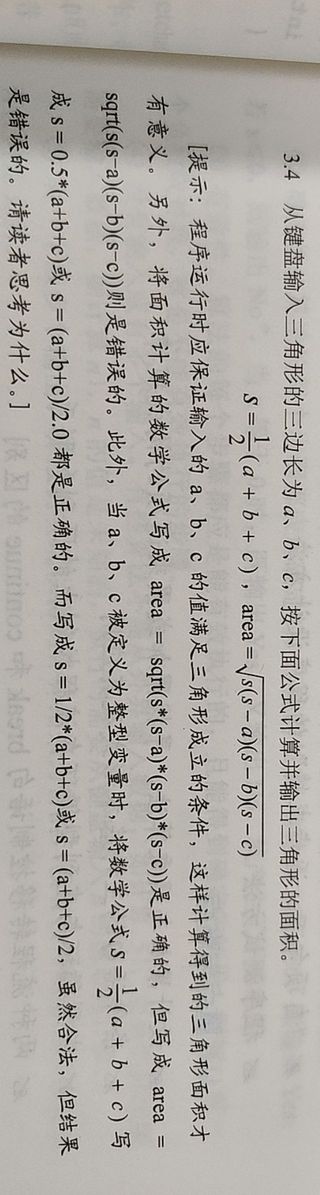 3.4 从键盘输入三角形的三边长为 a、b、c，按下面公式计算并输出三角形的面积。
S = 1/2 (a + b + c)，area = √s(s − a)(s − b)(s − c)
[提示：程序运行时应保证输入的 a、b、c 的值满足三角形成立的条件，这样计算得到的三角形面积才
有意义。另外，将面积计算的数学公式写成 area = sqrt(s*(s-a)*(s-b)*(s-c))是正确的，但写成 area =
sqrt(s(s-a)(s-b)(s-c))则是错误的。此外，当 a、b、c 被定义为整型变量时，将数学公式 S = 1/2 (a + b + c) 写
成 s = 0.5*(a+b+c)或 s = (a+b+c)/2.0 都是正确的。而写成 s = 1/2*(a+b+c)或 s = (a+b+c)/2，虽然合法，但结果
是错误的。请读者思考为什么。]